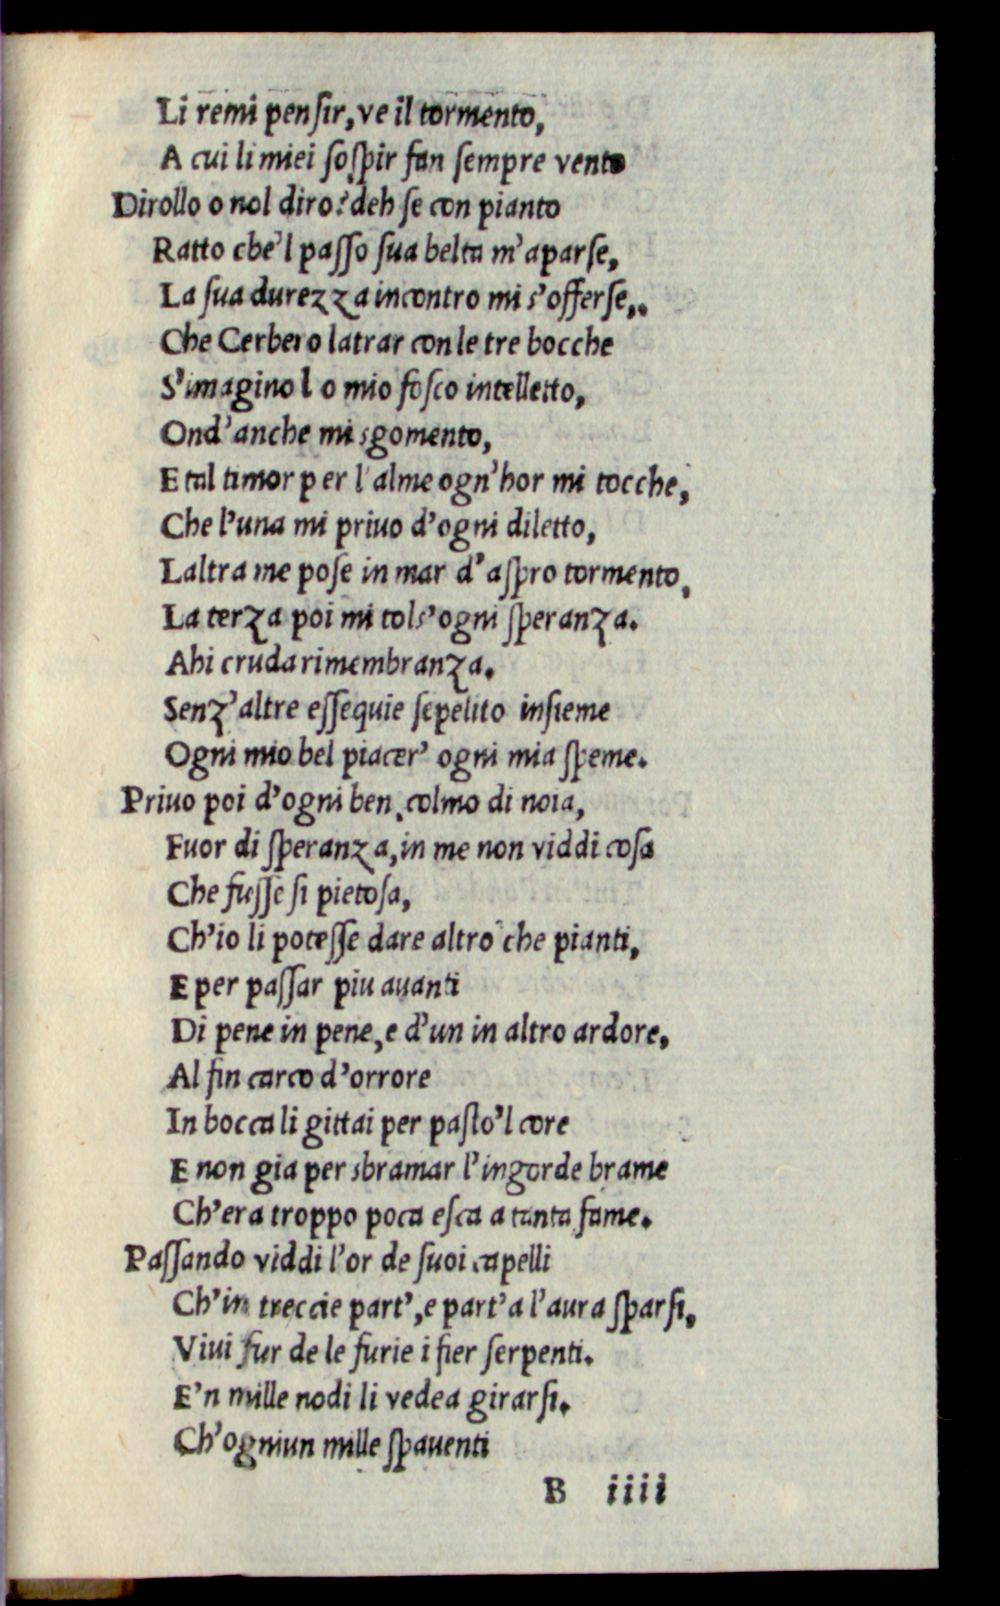 Li remi pensir, ve il tormento,
A cui li miei sospir fan sempre vento
Dirollo o nol diro? deh se con pianto
Ratto che'l passo sua belta m'aparse,
La sua durezza incontro mi s'offerse,.
Che Cerbero latrar con le tre bocche
S'imagino l o mio fosco intelletto,
Ond'anche mi sgomento,
E tal timor per l'alme ogn'hor mi tocche,
Che l'una mi priuo d'ogni diletto,
Laltra me pose in mar d'aspro tormento,
La terza poi mi tols'ogni speranza.
Ahi cruda rimembranza.
Senz'altre essequie sepelito insieme
Ogni mio bel piacer' ogni mia speme.
Priuo poi d'ogni ben, colmo di noia,
Fuor di speranza, in me non viddi cosa
Che fusse si pietosa,
Ch'io li potesse dare altro che pianti,
E per passar piu auanti
Di pene in pene, e d'un in altro ardore,
Al fin carco d'orrore
In bocca li gittai per pasto'l core
E non gia per sbramar l'ingorde brame
Ch'era troppo poca esca a tanta fame.
Passando viddi l'or de suoi capelli
Ch'in treccie part', e part'a l'aura sparsi,
Viui fur de le furie i fier serpenti.
E'n mille nodi li vedea girarsi.
Ch'ogniun mille spauenti
B iiii